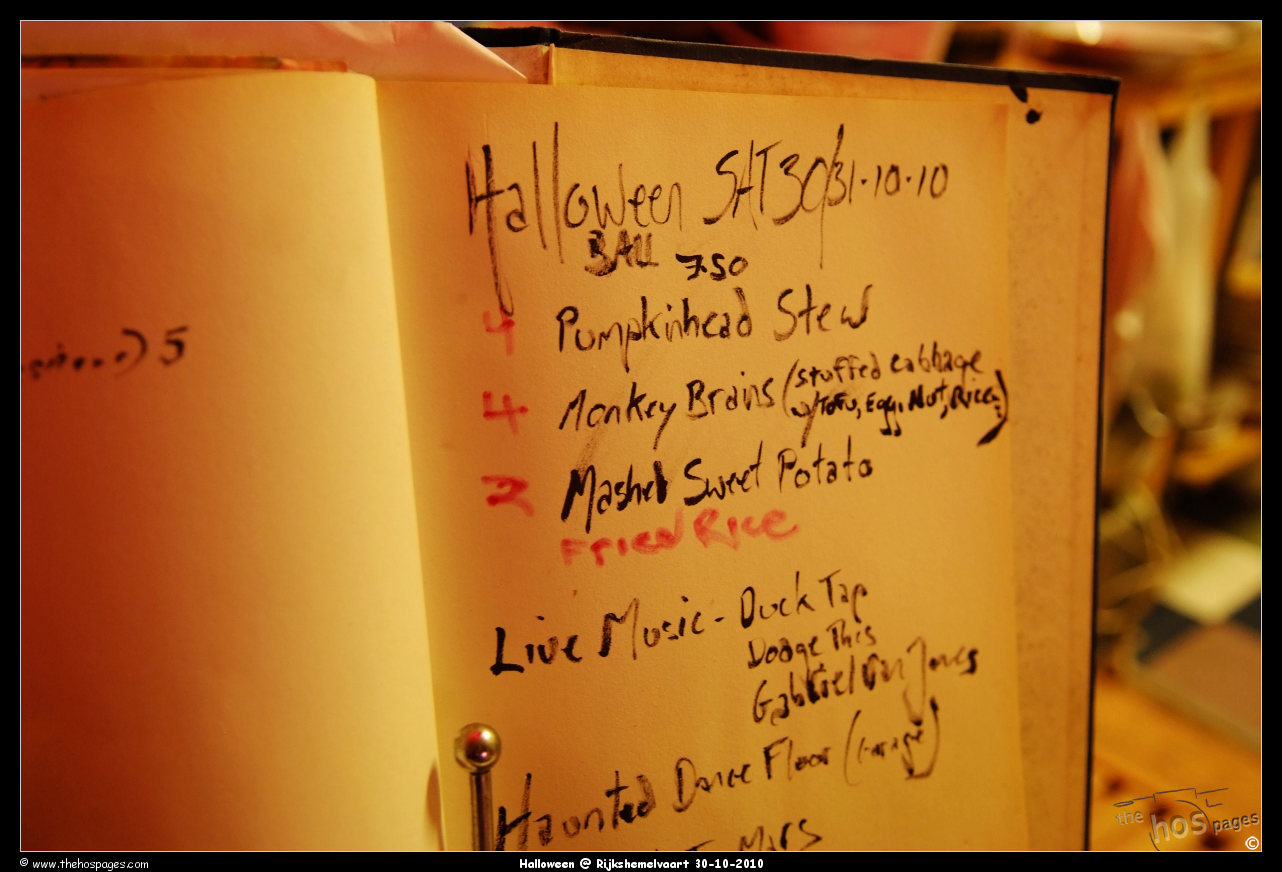 5
Halloween SAT 30/31·10·10
BALL 7.50
4 Pumpkinhead Stew
4 Monkey Brains (stuffed cabbage
w/ Tofu, Egg, Nut, Rice)
2 Mashed Sweet Potato
Fried Rice
Live Music - Duck Tap
Dodge This
Gabriel Van Jones
Haunted Dance Floor (Garage)
Mars
the hos pages
©
© www.thehospages.com
Halloween @ Rijkshemelvaart 30-10-2010